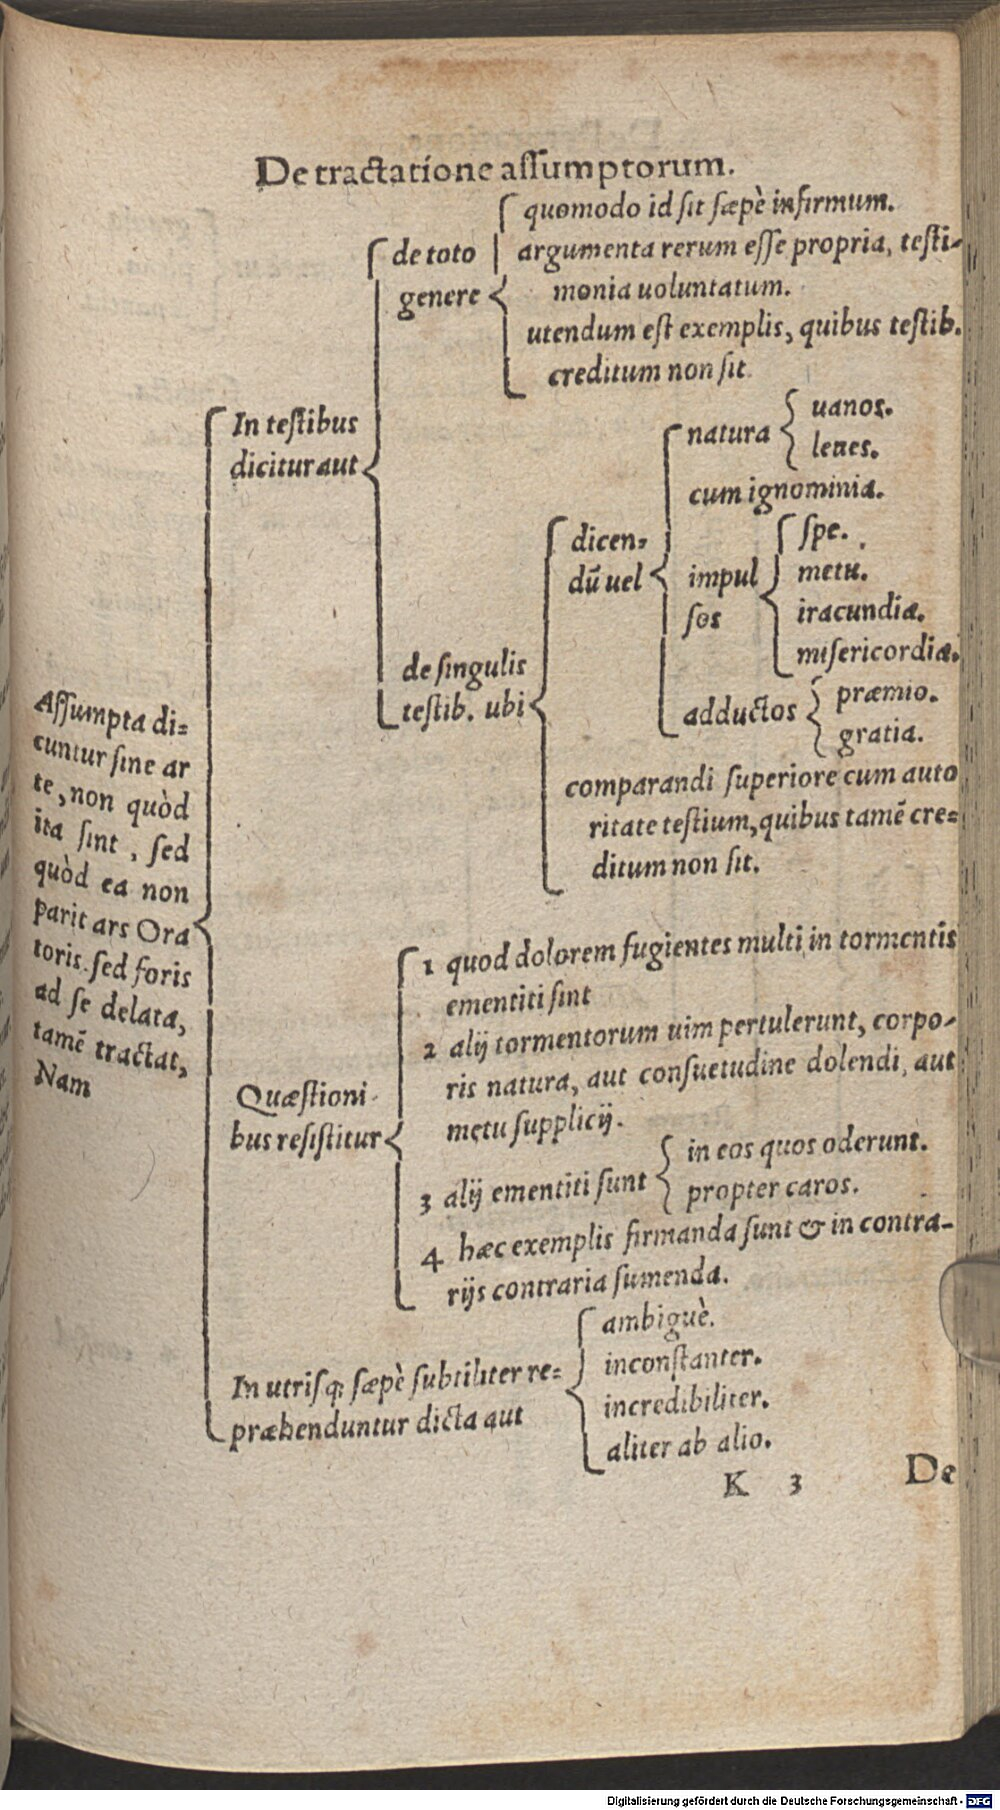 De tractatione assumptorum.
Assumpta di=
cuntur sine ar
te, non quòd
ita sint, sed
quòd ea non
parit ars Ora
toris. sed foris
ad se delata,
tamē tractat,
Nam
In testibus
dicitur aut
de toto
genere
quomodo id sit sæpè infirmum.
argumenta rerum esse propria, testi-
monia uoluntatum.
utendum est exemplis, quibus testib.
creditum non sit.
de singulis
testib. ubi
dicen=
dū uel
natura
uanos.
leues.
cum ignominia.
impul
sos
spe.
metu.
iracundia.
misericordia.
adductos
præmio.
gratia.
comparandi superiore cum auto
ritate testium, quibus tamē cre=
ditum non sit.
Quæstioni
bus resistitur
1 quod dolorem fugientes multi in tormentis
ementiti sint
2 alij tormentorum uim pertulerunt, corpo-
ris natura, aut consuetudine dolendi, aut
metu supplicij.
3 alij ementiti sunt
in eos quos oderunt.
propter caros.
4 hæc exemplis firmanda sunt & in contra-
rijs contraria sumenda.
In utrisq; sæpè subtiliter re=
præhenduntur dicta aut
ambiguè.
inconstanter.
incredibiliter.
aliter ab alio.
K 3
De
Digitalisierung gefördert durch die Deutsche Forschungsgemeinschaft - DFG